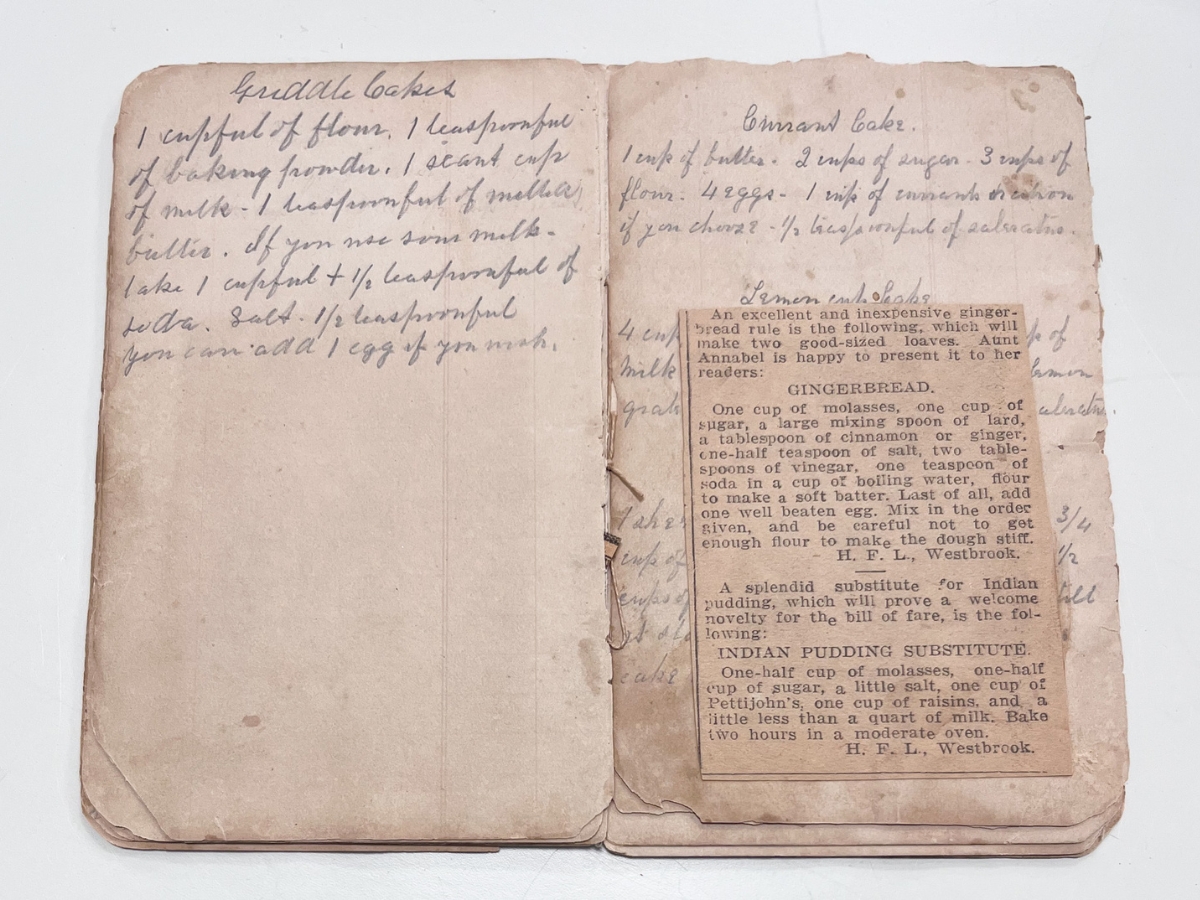 Griddle Cakes
1 cupful of flour. 1 teaspoonful
of baking powder. 1 scant cup
of milk - 1 teaspoonful of melted
butter. If you use sour milk -
take 1 cupful + 1/2 teaspoonful of
soda. Salt - 1/2 teaspoonful
you can add 1 egg if you wish.
Currant Cake.
1 cup of butter - 2 cups of sugar - 3 cups of
flour. 4 eggs - 1 cup of currants or citron
if you choose - 1/2 teaspoonful of saleratus.
Lemon cup Cake
4 cup
of
milk
lemon
saleratus.
3/4
cup of
1/2
cups of
till
cake
An excellent and inexpensive ginger-
bread rule is the following, which will
make two good-sized loaves. Aunt
Annabel is happy to present it to her
readers:
GINGERBREAD.
One cup of molasses, one cup of
sugar, a large mixing spoon of lard,
a tablespoon of cinnamon or ginger,
one-half teaspoon of salt, two table-
spoons of vinegar, one teaspoon of
soda in a cup of boiling water, flour
to make a soft batter. Last of all, add
one well beaten egg. Mix in the order
given, and be careful not to get
enough flour to make the dough stiff.
H. F. L., Westbrook.
A splendid substitute for Indian
pudding, which will prove a welcome
novelty for the bill of fare, is the fol-
lowing:
INDIAN PUDDING SUBSTITUTE.
One-half cup of molasses, one-half
cup of sugar, a little salt, one cup of
Pettijohn's, one cup of raisins, and a
little less than a quart of milk. Bake
two hours in a moderate oven.
H. F. L., Westbrook.